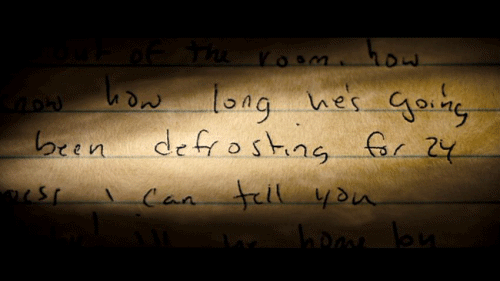 out of the room. how
how long he's going
been defrosting for 24
I can tell you
be home by